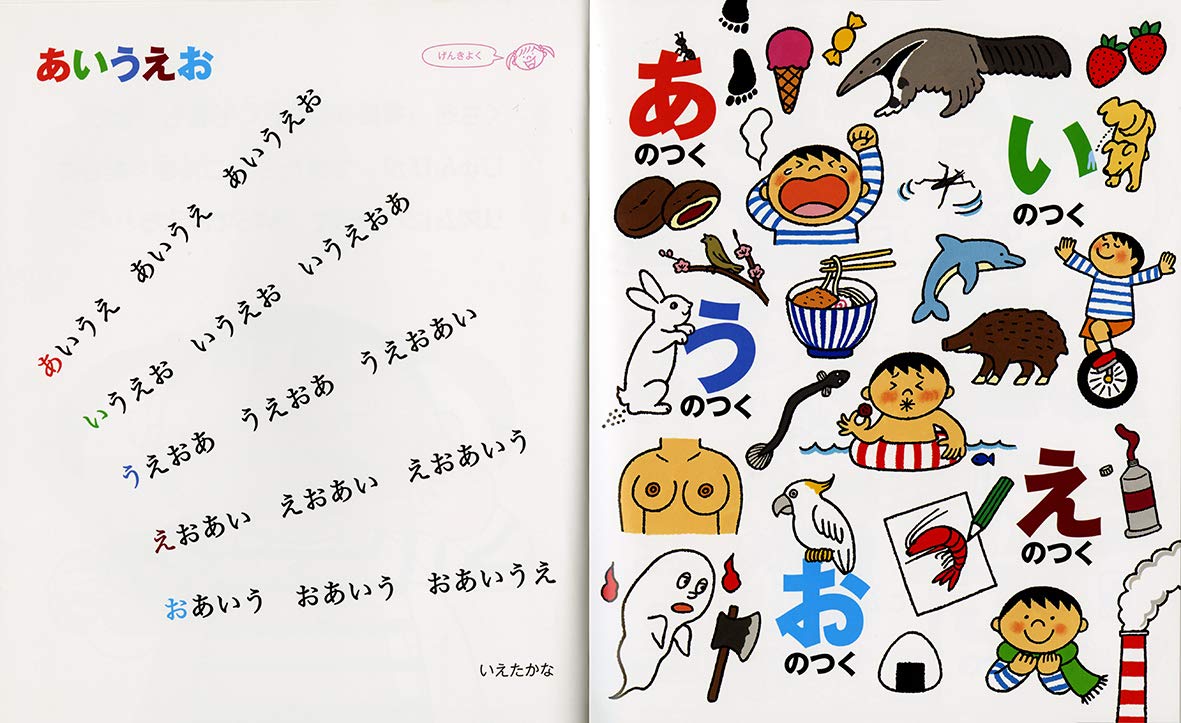 あいうえお
げんきよく
あいうえ あいうえ あいうえお
いうえお いうえお いうえおあ
うえおあ うえおあ うえおあい
えおあい えおあい えおあいう
おあいう おあいう おあいうえ
いえたかな
あ
のつく
い
のつく
う
のつく
え
のつく
お
のつく